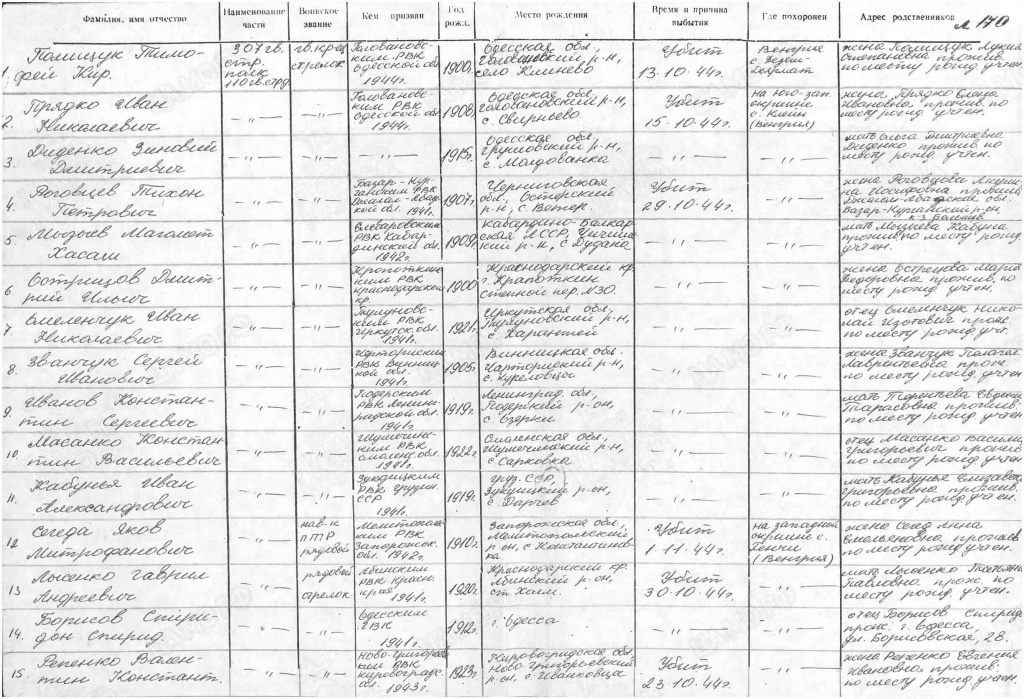 Фамилия, имя отчество
Наименование части
Воинское звание
Кем призван
Год рожд.
Место рождения
Время и причина выбытия
Где похоронен
Адрес родственников
л 170
1. Полищук Тимо-
фей Кир.
307 гв.
стр.
полк
110 гв. стрд
гв. кр-ц
стрелок
Головановс-
ким РВК
Одесской обл.
1944г.
1900г.
Одесская обл,
р-н,
село
Убит
13.10.44г.
Венгрия
с.
жена Полищук Лукия
Степановна прожив.
по месту рожд. учтен.
2. Прядко Иван
Николаевич
—„—
—„—
Головановс-
ким РВК
Одесской обл.
1944г.
1908г.
Одесская обл,
Голованоский р-н,
с. Свирнево
Убит
15.10.44г.
на юго-зап.
окраине
с. Клейн
(Венгрия)
жена, Прядко Елена
Ивановна прожив. по
месту рожд. учтен.
3. Диденко Зиновий
Дмитриевич
—„—
—„—
—„—
1915г.
Одесская обл,
р-н,
с. Молдованка
—„—
—„—
мать Ольга Дмитриевна
Диденко прожив. по
месту рожд. учтен.
4. Роговцев Тихон
Петрович
—„—
—„—
Базар-Кур-
ганским РВК
Джалал-Абад-
ской обл. 1941г.
1907г.
Черниговская
обл, Остерский
р-н, с.
Убит
29.10.44г.
—„—
жена Роговцова
Иосифовна прожив.
Джалал-Абадская обл.
Базар-Курганский р-он,
5. Магомет
Хасаш
—„—
—„—
РВК Кабар-
динской обл.
1942г.
1909г.
Кабардино-Балкар-
ская АССР,
р-н, с
—„—
—„—
мать
прожив. по месту рожд.
учтен.
6. Острицов Дмит-
рий Ильич
—„—
—„—
Кропоткин-
ким РВК
Краснодарского
кр.
1900г.
Краснодарский кр.
г. Крапоткин
Степной пер. N30
—„—
—„—
жена Острецова Мария
Федоровна прожив. по
месту рожд. учтен.
7. Емеленчук Иван
Николаевич
—„—
—„—
Тулуновс-
ким РВК
Иркутск. обл.
1941г.
1921г.
Иркутская обл,
Тулуновский р-н,
с. Карантей
—„—
—„—
отец Емеленчук Нико-
лай Изотович прож.
по месту рожд. учт.
8. Званчук Сергей
Иванович
—„—
—„—
РВК Винниц-
кой обл.
1941г.
1905г.
Винницкая обл.
р-н,
с. Кукеловцы
—„—
—„—
жена Званчук Пелагея
Лаврентьевна прож.
по месту рожд. учтен
9. Иванов Констан-
тин Сергеевич
—„—
—„—
РВК Ленин-
градской обл.
1941г.
1919г.
Ленинград. обл,
р-он,
с. Озерки
—„—
—„—
мать Терентьева
Тарасовна прожив.
по месту рожд. учтен
10. Масанко Констан-
тин Васильевич
—„—
—„—
Шумячинс-
ким РВК
Смоленс. обл.
1941г.
1922г.
Смоленская обл,
Шумячинский р-н,
с. Сарковка
—„—
—„—
отец Масанко Василий
Григорьевич прожив.
по месту рожд. учтен
11. Кабунья Иван
Александрович
—„—
—„—
РВК Грузин.
ССР
1941г.
1919г.
Груз. ССР,
р-он,
с.
—„—
—„—
мать Кабунья Елизавета
Григорьевна прожив.
по месту рожд. учтен.
12. Сегеда Яков
Митрофанович
—„—
нав-к
ПТР
рядовой
Мелитополь-
ким РВК
Запорожск.
обл. 1942г.
1910г.
Запорожская обл,
Мелитопольский
р-он, с Константинов-
ка
Убит
1.11.44г.
на западной
окраине с.
(Венгрия)
жена Сегед Анна
Емельяновна прожив.
по месту рожд. учтен.
13. Лысенко Гаврил
Андреевич
—„—
рядовой
стрелок
Абинским
РВК Красн.
края
1941г.
1920г.
Краснодарский кр.
Абинский р-он,
ст.
Убит
30.10.44г.
—„—
мать Лысенко Татьяна
Павловна прож. по
месту рожд. учтен.
14. Борисов Спири-
дон Спирид.
—„—
—„—
Одесским
ГВК
1941г.
1912г.
г. Одесса
—„—
—„—
отец Борисов Спирид.
прож. г. Одесса,
ул. Борисовская, 28.
15. Репенко Вален-
тин Констант.
—„—
—„—
Ново-Григорьевс-
ким РВК
Кировоградс.
обл. 1943г.
1923г.
Кировоградская обл,
Ново-Григорьевский
р-он, с Иванковцы
Убит
23.10.44г.
—„—
жена Рапенко Евгения
Ивановна прожив.
по месту рожд. учтен.